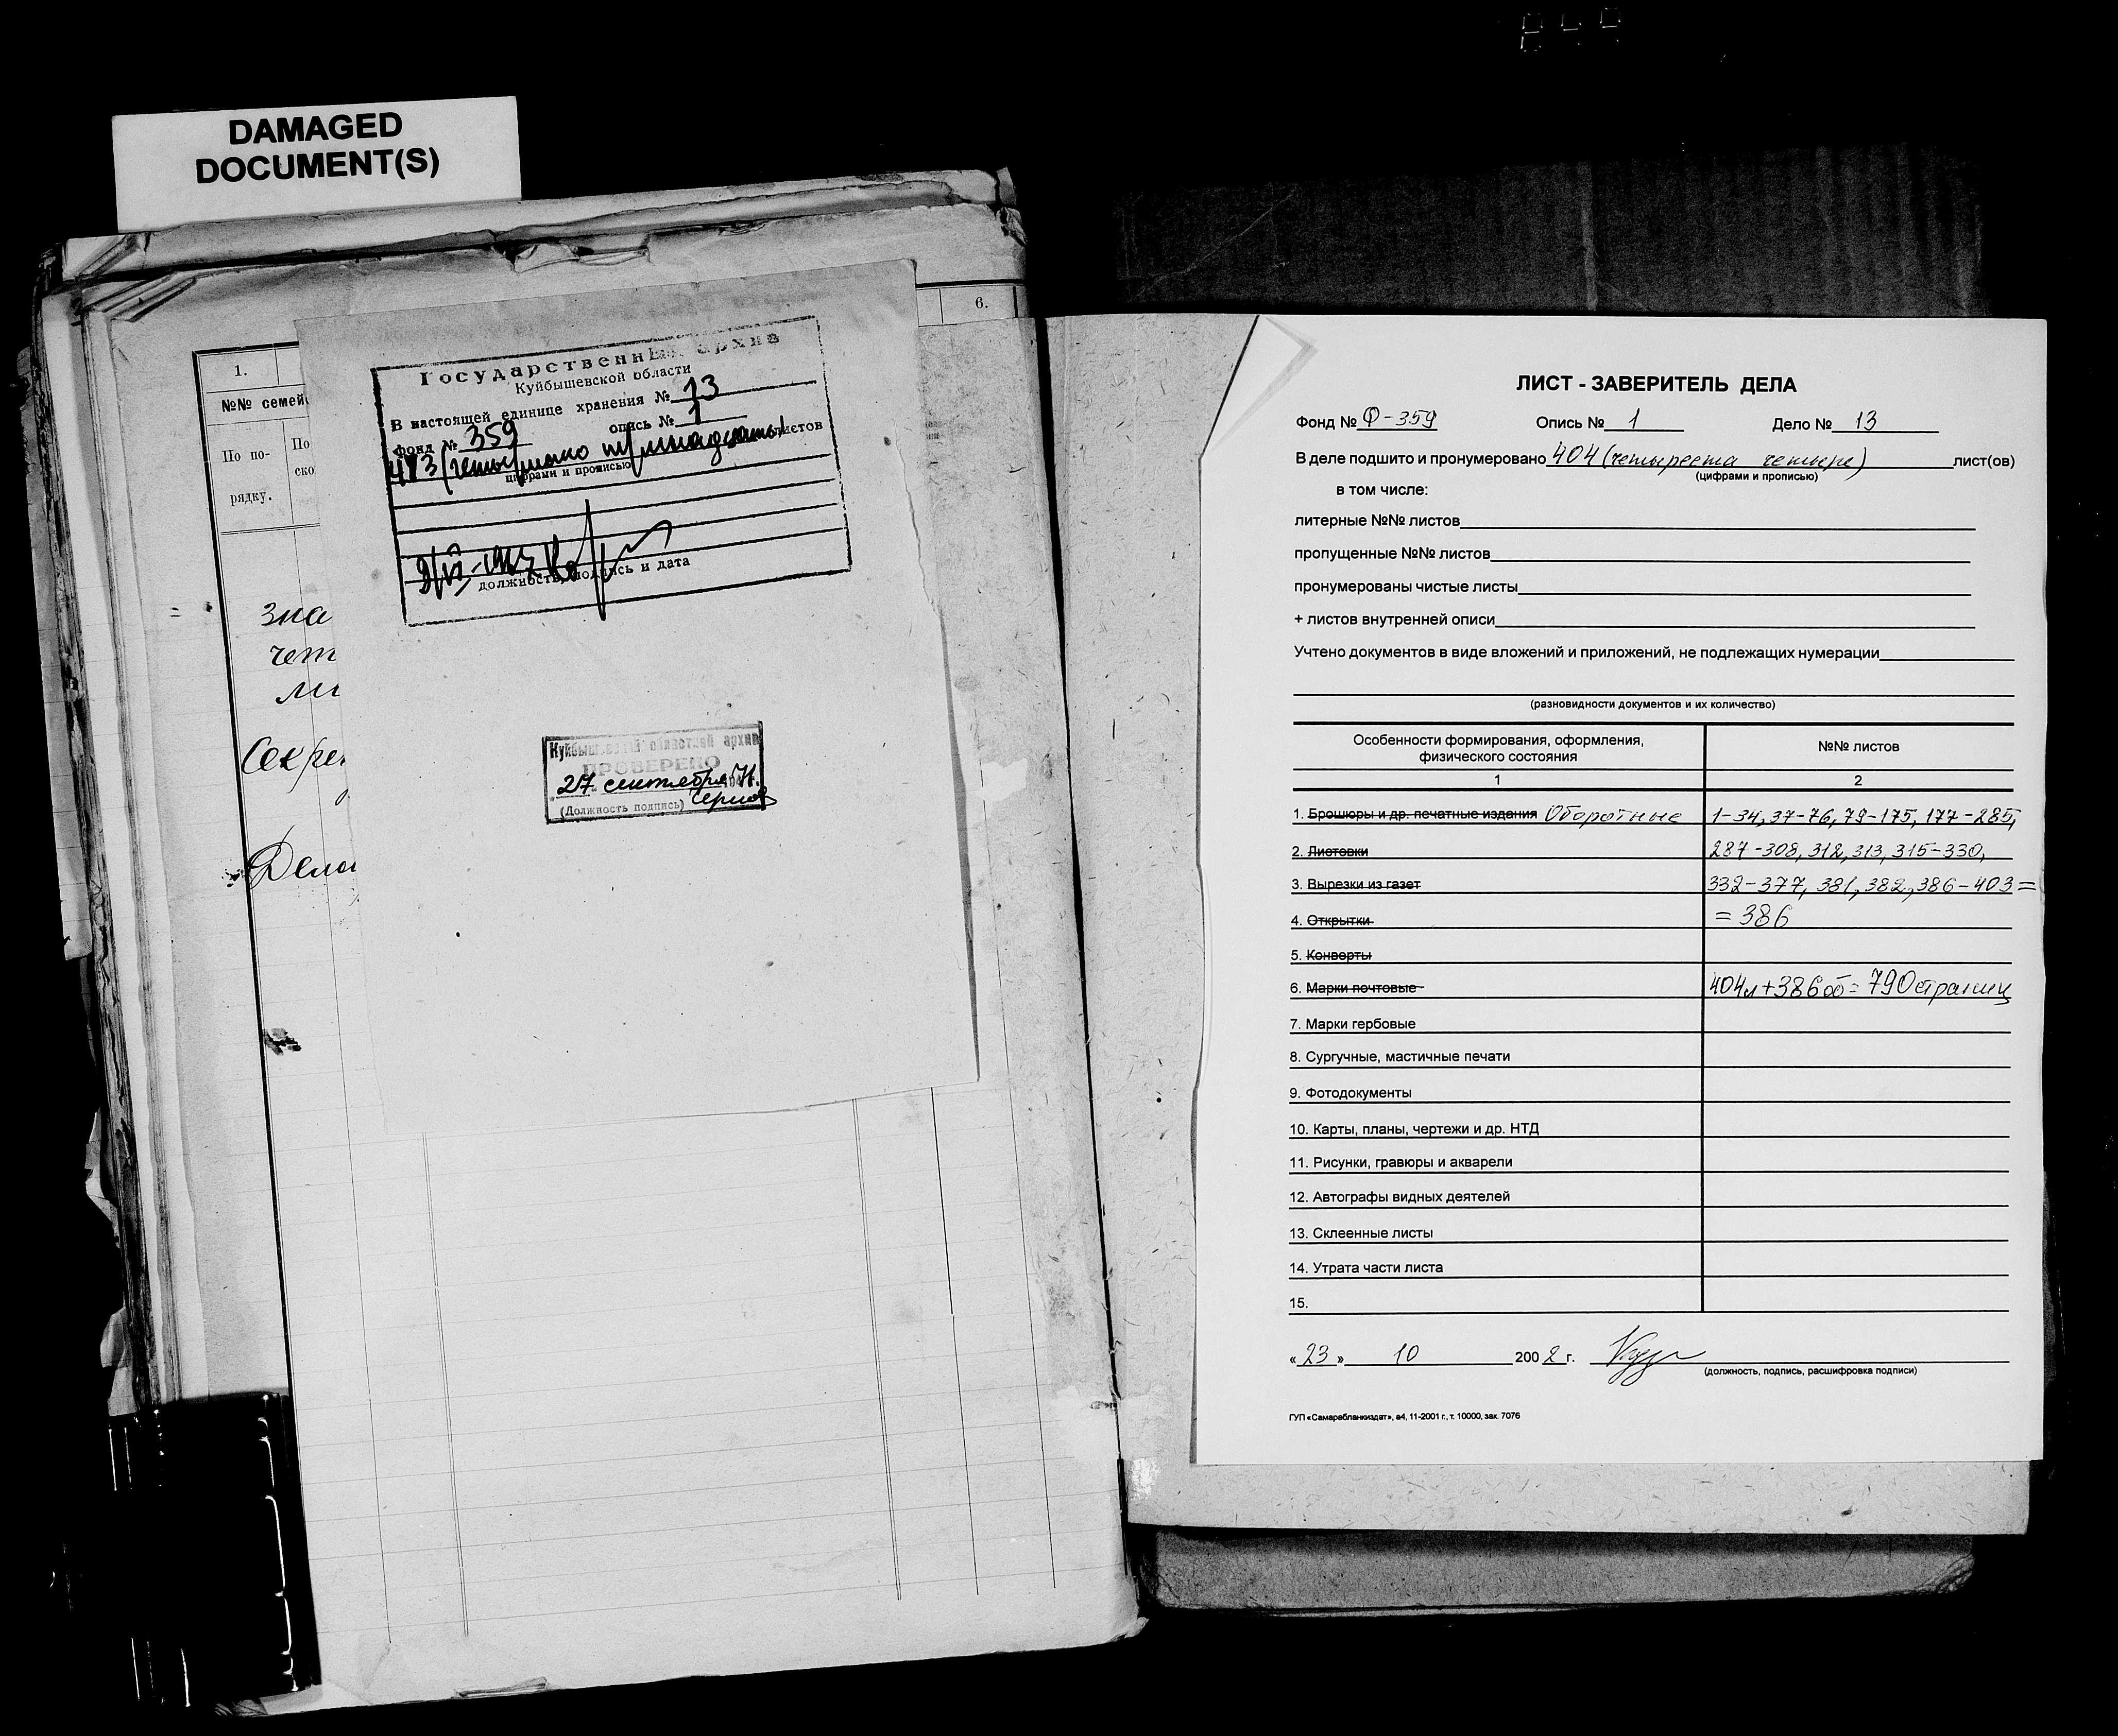 DAMAGED
DOCUMENT(S)
6.
1.
№№ семей
По по-
рядку.
По
ско
зна
чет
ли
Секре
Дело
Государственный архив
Куйбышевской области
В настоящей единице хранения № 13
фонд № 359 опись № 1
413 (четыреста тринадцать) листов
цифрами и прописью
должность, подпись и дата
Куйбышевский областной архив
ПРОВЕРЕНО
27 сентября
(Должность подпись)
ЛИСТ - ЗАВЕРИТЕЛЬ ДЕЛА
Фонд № Ф-359 Опись № 1 Дело № 13
В деле подшито и пронумеровано 404 (четыреста четыре) лист(ов)
(цифрами и прописью)
в том числе:
литерные №№ листов
пропущенные №№ листов
пронумерованы чистые листы
+ листов внутренней описи
Учтено документов в виде вложений и приложений, не подлежащих нумерации
(разновидности документов и их количество)
Особенности формирования, оформления,
физического состояния
№№ листов
1 2
1. Брошюры и др. печатные издания Оборотные 1-34, 37-76, 79-175, 177-285,
2. Листовки 287-308, 312, 313, 315-330,
3. Вырезки из газет 332-377, 381, 382, 386-403=
4. Открытки = 386
5. Конверты
6. Марки почтовые 404л+386об=790страниц
7. Марки гербовые
8. Сургучные, мастичные печати
9. Фотодокументы
10. Карты, планы, чертежи и др. НТД
11. Рисунки, гравюры и акварели
12. Автографы видных деятелей
13. Склеенные листы
14. Утрата части листа
15.
«23» 10 2002 г.
(должность, подпись, расшифровка подписи)
ГУП «Самарабланкиздат», а4, 11-2001 г., т. 10000, зак. 7076